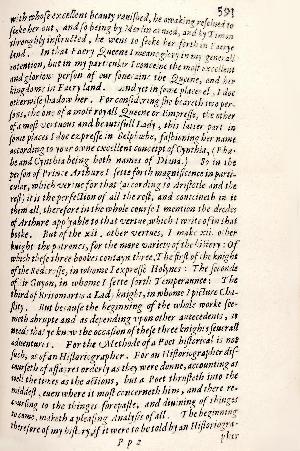 591
with whose excellent beauty rauished, he awaking resolued to
seeke her out, and so being by Merlin armed, and by Timon
throughly instructed, he went to seeke her forth in Faerye
land. In that Faery Queene I meane glory in my generall
intention, but in my particular I conceiue the most excellent
and glorious person of our soueraine the Queene, and her
kingdome in Faery land. And yet in some places els, I doe
otherwise shadow her. For considering she beareth two per-
sons, the one of a most royall Queene or Empresse, the other
of a most vertuous and beautifull Lady, this latter part in
some places I doe expresse in Belphœbe, fashioning her name
according to your owne excellent conceipt of Cynthia, (Phœ-
be and Cynthia being both names of Diana.) So in the
person of Prince Arthure I sette forth magnificence in parti-
cular, which vertue for that (according to Aristotle and the
rest) it is the perfection of all the rest, and conteineth in it
them all, therefore in the whole course I mention the deedes
of Arthure applyable to that vertue, which I write of in that
booke. But of the xii. other vertues, I make xii. other
knights the patrones, for the more variety of the history: Of
which these three bookes contayn three, The first of the knight
of the Redcrosse, in whome I expresse Holynes: The seconde
of Sir Guyon, in whome I sette forth Temperaunce: The
third of Britomartis a Lady knight, in whome I picture Cha-
stity. But because the beginning of the whole worke see-
meth abrupte and as depending vpon other antecedents, it
needs that ye know the occasion of these three knights seuerall
aduentures. For the Methode of a Poet historical is not
such, as of an Historiographer. For an Historiographer dis-
courseth of affayres orderly as they were donne, accounting as
well the times as the actions, but a Poet thrusteth into the
middest, euen where it most concerneth him, and there re-
coursing to the thinges forepaste, and diuining of thinges
to come, maketh a pleasing Analysis of all. The beginning
therefore of my history, if it were to be told by an Historiogra-
Pp2 pher